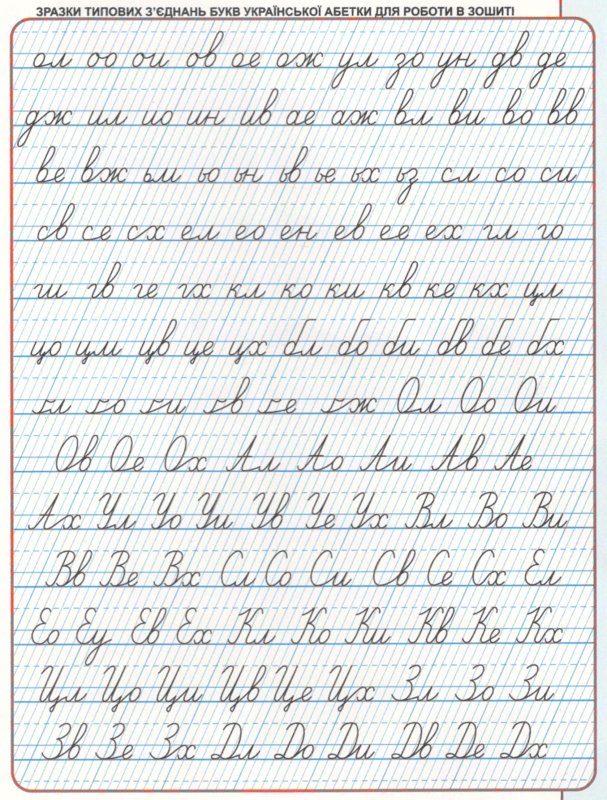 ЗРАЗКИ ТИПОВИХ З'ЄДНАНЬ БУКВ УКРАЇНСЬКОЇ АБЕТКИ ДЛЯ РОБОТИ В ЗОШИТІ
ол оо ои ов ое ож ул зо ун дв де
дж ил ио ин ив ае аж вл ви во вв
ве вж ьм ьо ьн ьв ье ьх ьз сл со си
св се сх ел ео ен ев ее ех гл го
ги гв ге гх кл ко ки кв ке кх цл
цо цм цв це цх бл бо би бв бе бх
ґл ґо ґи ґв ґе ґж Ол Оо Ои
Ов Ое Ох Ал Ао Аи Ав Ае
Ах Ул Уо Уи Ув Уе Ух Вл Во Ви
Вв Ве Вх Сл Со Си Св Се Сх Ел
Ео Еу Ев Ех Кл Ко Ки Кв Ке Кх
Цл Цо Цм Цв Це Цх Зл Зо Зи
Зв Зе Зх Дл До Ди Дв Де Дх